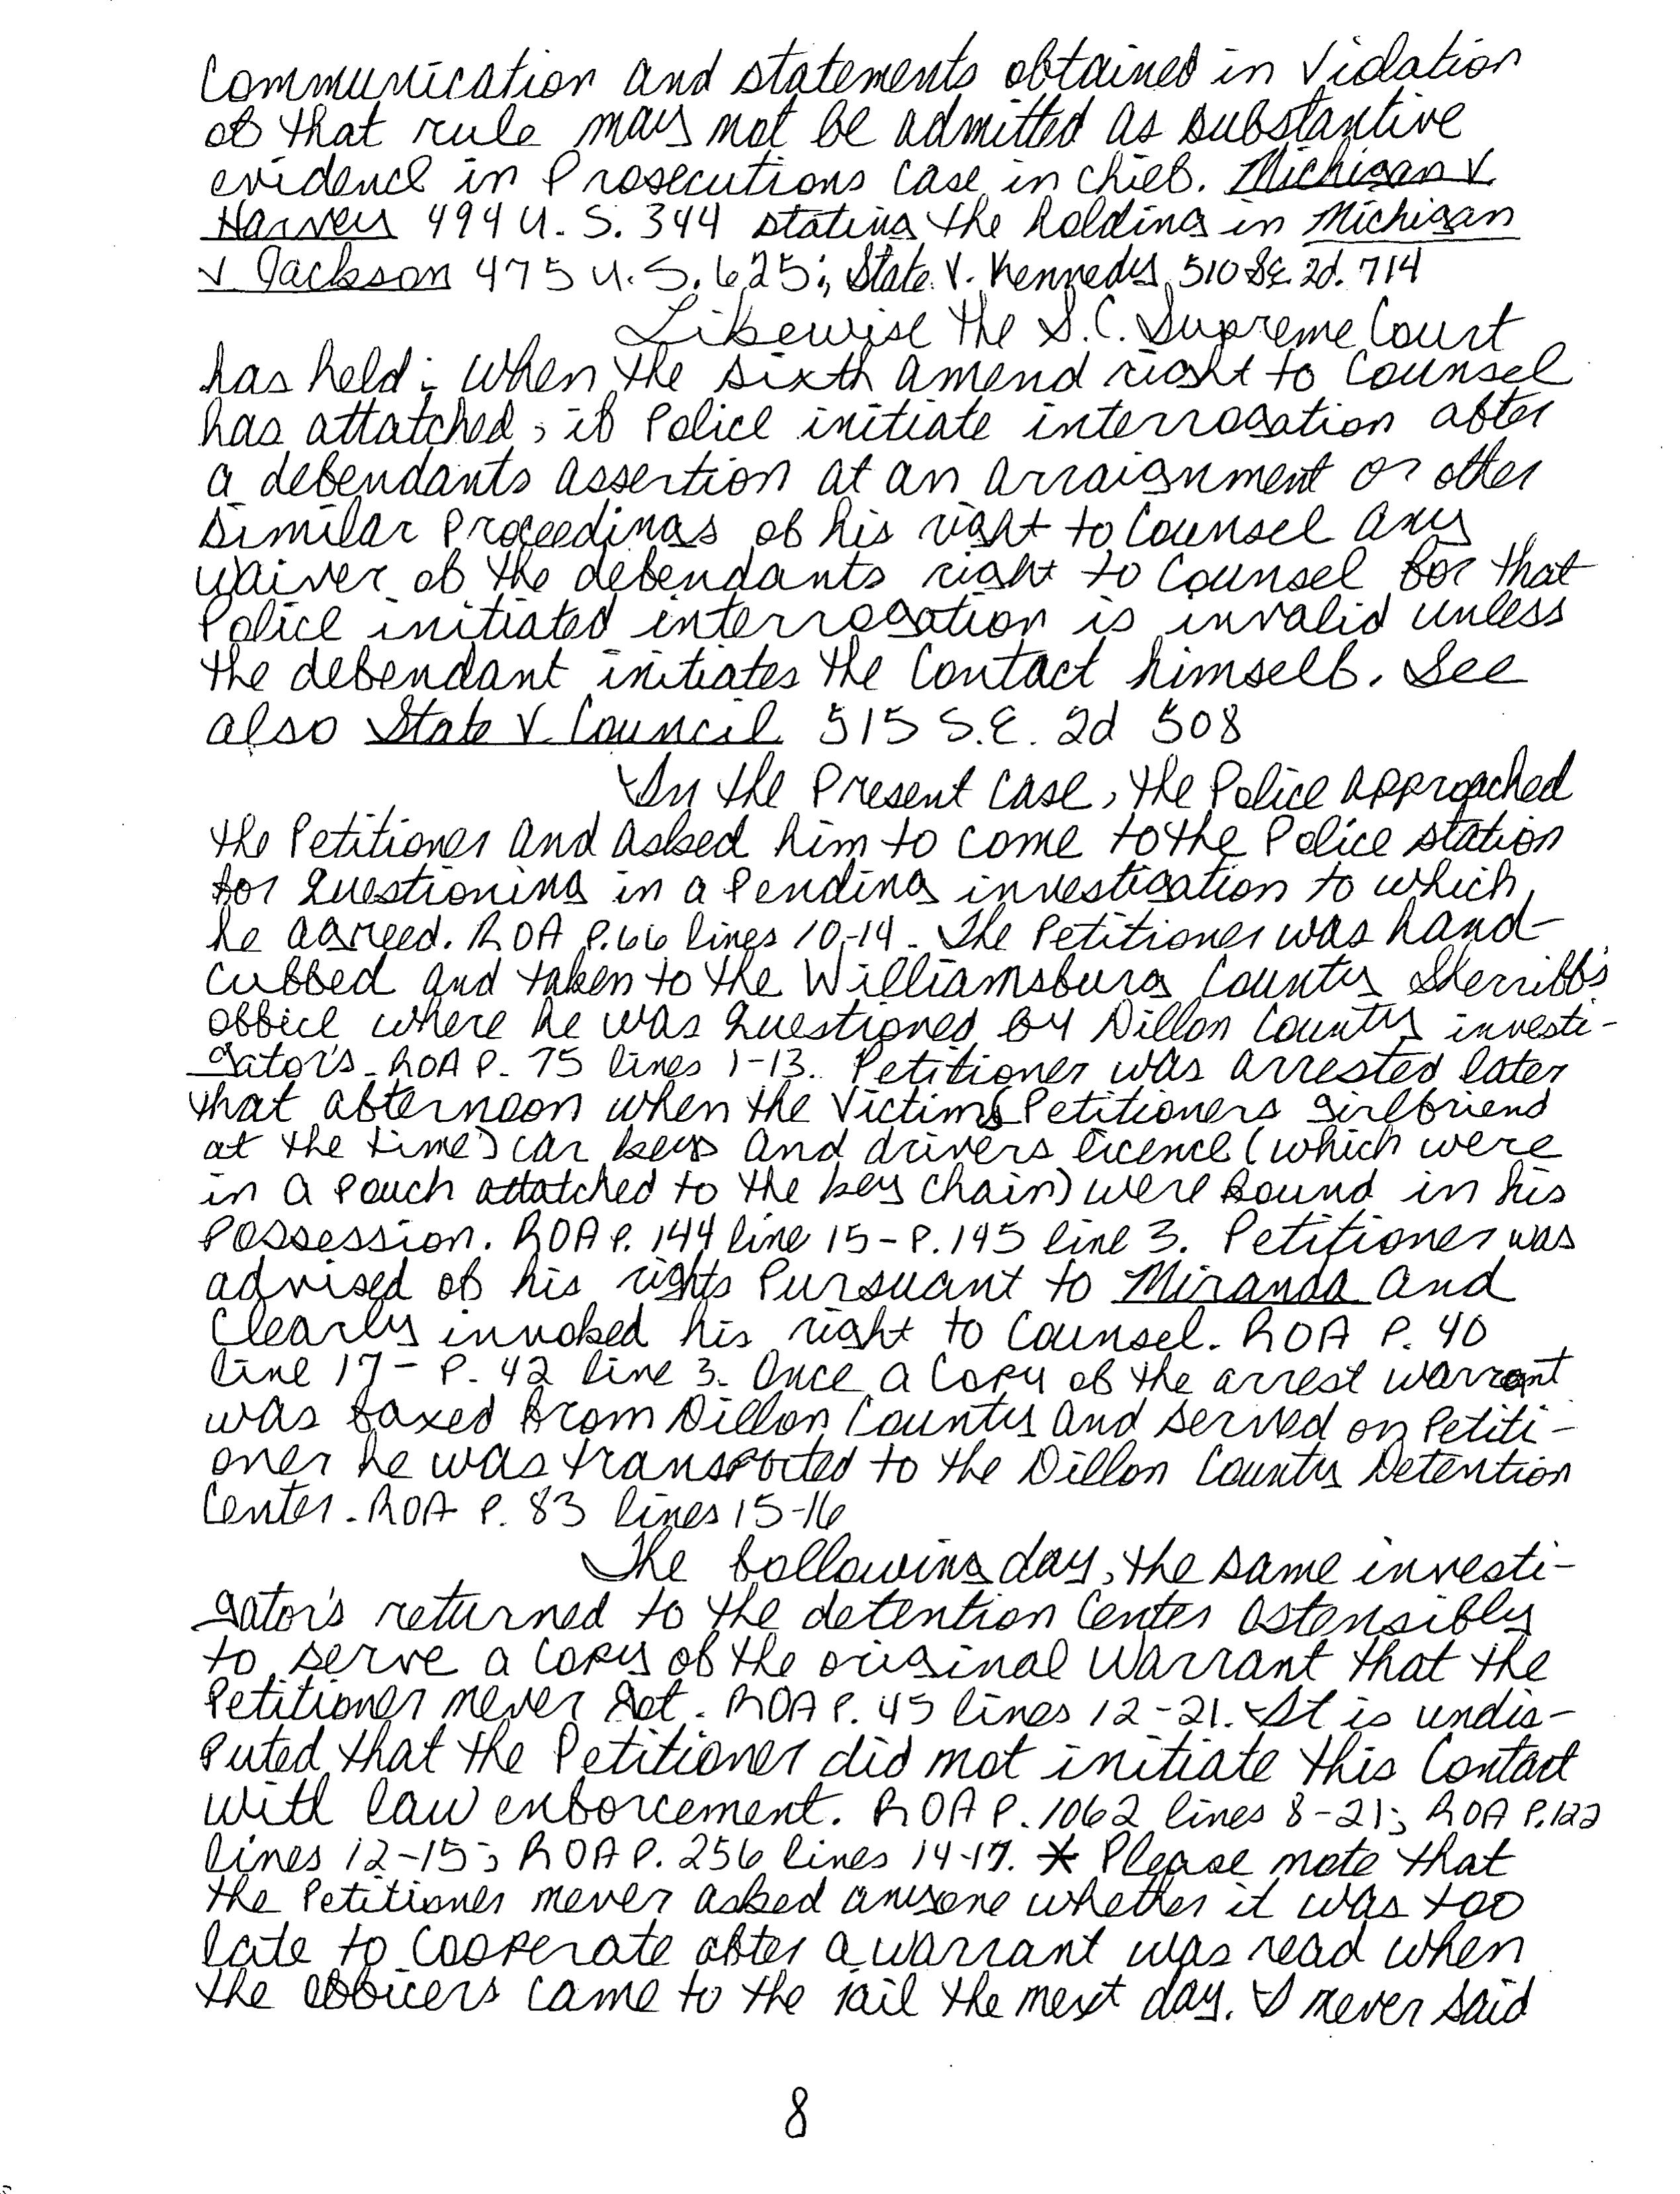 Communication and statements obtained in violation
of that rule may not be admitted as substantive
evidence in Prosecutions Case in chief. Michigan v.
Harvey 494 U.S. 344 stating the holding in Michigan
v Jackson 475 U.S. 625; State v. Kennedy 510 S.E. 2d. 714
Likewise the S.C. Supreme Court
has held; when the sixth amend right to Counsel
has attatched, if Police initiate interrogation after
a defendants assertion at an arraignment or other
similar Proceedings of his right to Counsel any
waiver of the defendants right to Counsel for that
Police initiated interrogation is invalid unless
the defendant initiates the Contact himself. See
also State v Council 515 S.E. 2d 508
In the Present Case, the Police approached
the Petitioner and asked him to come to the Police station
for Questioning in a Pending investigation to which
he agreed. ROA P.66 lines 10-14. The Petitioner was hand-
cuffed and taken to the Williamsburg County Sherriff's
office where he was Questioned by Dillon County investi-
gator's. ROA P. 75 lines 1-13. Petitioner was arrested later
that afternoon when the Victims (Petitioners girlfriend
at the time) car keys and drivers licence (which were
in a Pouch attatched to the key chain) were found in his
Possession. ROA P. 144 line 15 - P. 145 line 3. Petitioner was
advised of his rights Pursuant to Miranda and
Clearly invoked his right to Counsel. ROA P. 40
line 17 - P. 42 line 3. Once a Copy of the arrest warrant
was faxed from Dillon County and served on Petiti-
oner he was transported to the Dillon County Detention
Center. ROA P. 83 lines 15-16
The following day, the same investi-
gator's returned to the detention Center Ostensibly
to serve a Copy of the original Warrant that the
Petitioner never got. ROA P. 45 lines 12-21. It is undis-
Puted that the Petitioner did not initiate this Contact
with law enforcement. ROA P. 1062 lines 8-21; ROA P.122
lines 12-15; ROA P. 256 lines 14-17. * Please note that
the Petitioner never asked anyone whether it was too
late to Cooperate after a warrant was read when
the officers came to the jail the next day. I never said
8